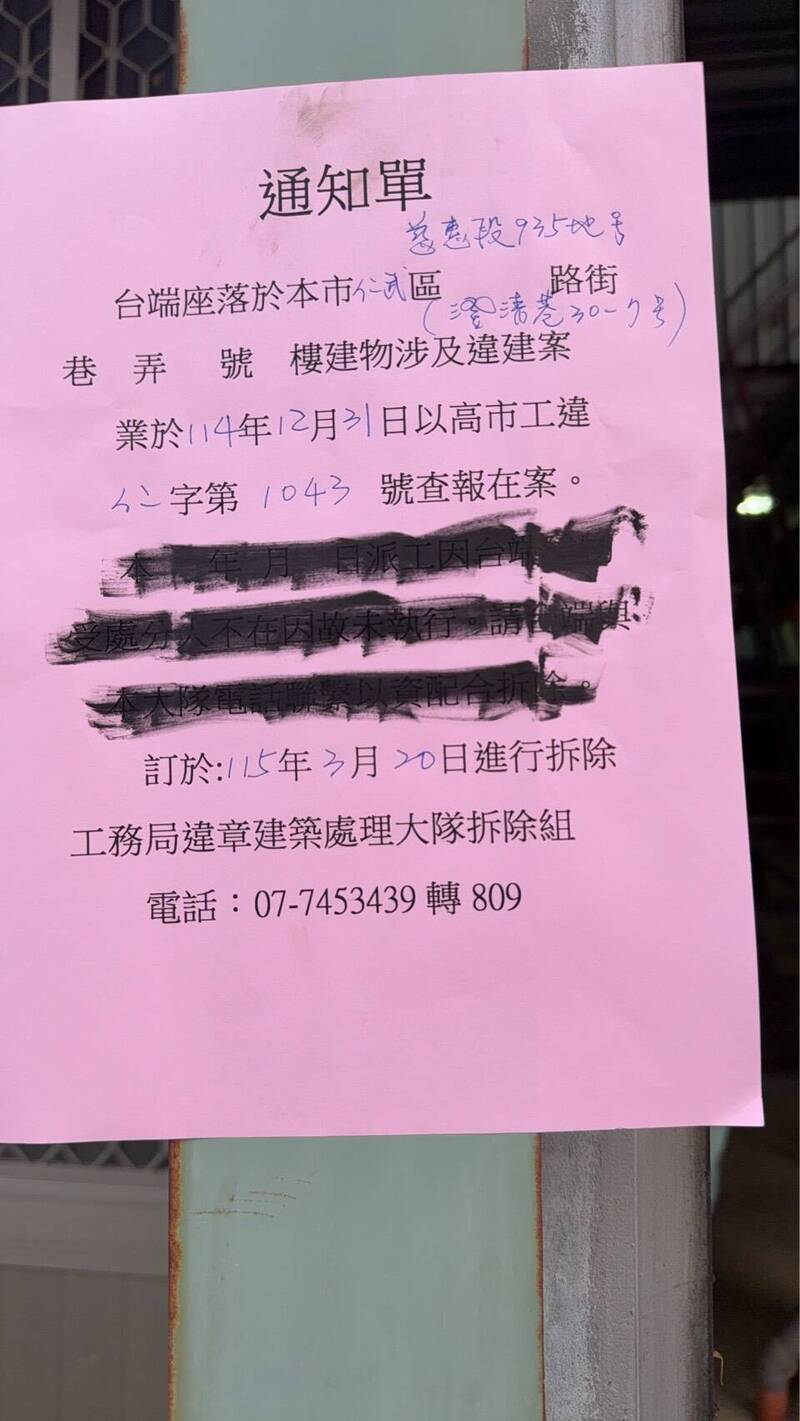 通知單
慈惠段935地号
台端座落於本市仁武區 路街
(澄清巷30-7号)
巷 弄 號 樓建物涉及違建案
業於114年12月31日以高市工違
仁字第 1043 號查報在案。
本 年 月 日派工因台端
受處分人不在因故未執行。請台端與
本大隊電話聯繫以資配合拆除。
訂於:115年3月20日進行拆除
工務局違章建築處理大隊拆除組
電話：07-7453439 轉 809